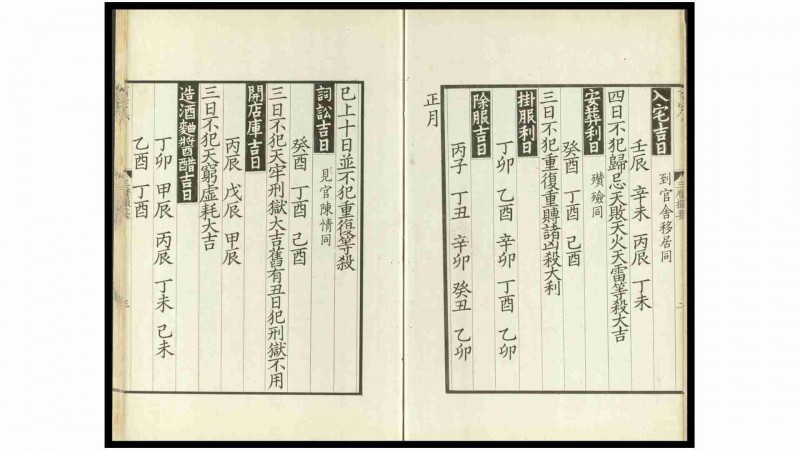 入宅吉日 到官舍移居同
壬辰 辛未 丙辰 丁未
四日不犯歸忌天敗天火天雷等殺大吉
安葬利日 殯殮同
癸酉 丁酉 己酉
三日不犯重復重賻諸凶殺大利
掛服利日
丁卯 乙酉 辛卯 丁酉 乙卯
除服吉日
丙子 丁丑 辛卯 癸丑 乙卯
正月
已上十日並不犯重復等殺
詞訟吉日 見官陳情同
癸酉 丁酉 己酉
三日不犯天牢刑獄大吉舊有丑日犯刑獄不用
開店庫吉日
丙辰 戊辰 甲辰
三日不犯天窮虛耗大吉
造酒麵醬醋吉日
丁卯 甲辰 丙辰 丁未 己未
乙酉 丁酉
三